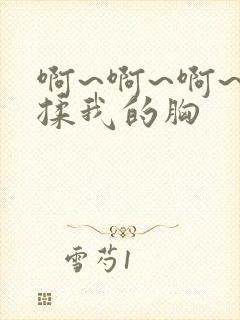 啊~啊~啊~
揉我的胸
雪芍1